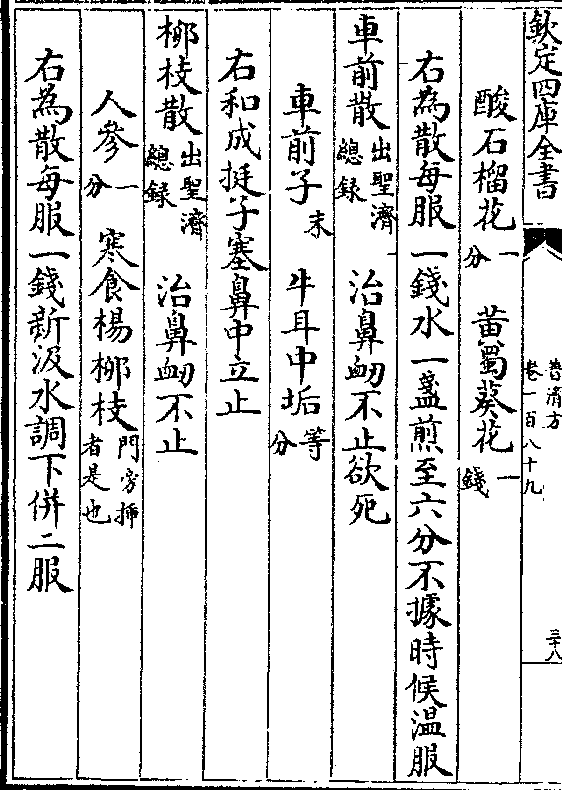 欽定四庫全書
普濟方
卷一百八十九
三十八
酸石榴花一分 黄蜀葵花一錢
右為散每服一錢水一盞煎至六分不據時候温服
車前散出聖濟總録 治鼻衂不止欲死
車前子末 牛耳中垢等分
右和成挺子塞鼻中立止
柳枝散出聖濟總録 治鼻衂不止
人參一分 寒食楊柳枝門旁揷者是也
右為散每服一錢新汲水調下併二服